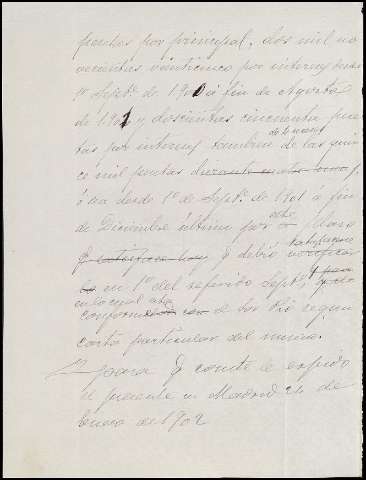 pesetas por principal, dos mil no
vecientas veinticinco por interes desde
1º Septe. de 1900 á fin de Agosto
de 1901 y doscientas cincuenta pese
tas por interes tambien de las quin
ce mil pesetas durante
ó sea desde 1º de Septe. de 1901 á fin
de Diciembre último por otro plazo
q. satisface hoy q. debió satisfacerse verificar
en 1º del referido Septe. y
en lo cual está
conforme de los Rio segun
carta particular del mismo.
Y para q. conste le expido
el presente en Madrid 24 de
Enero de 1902